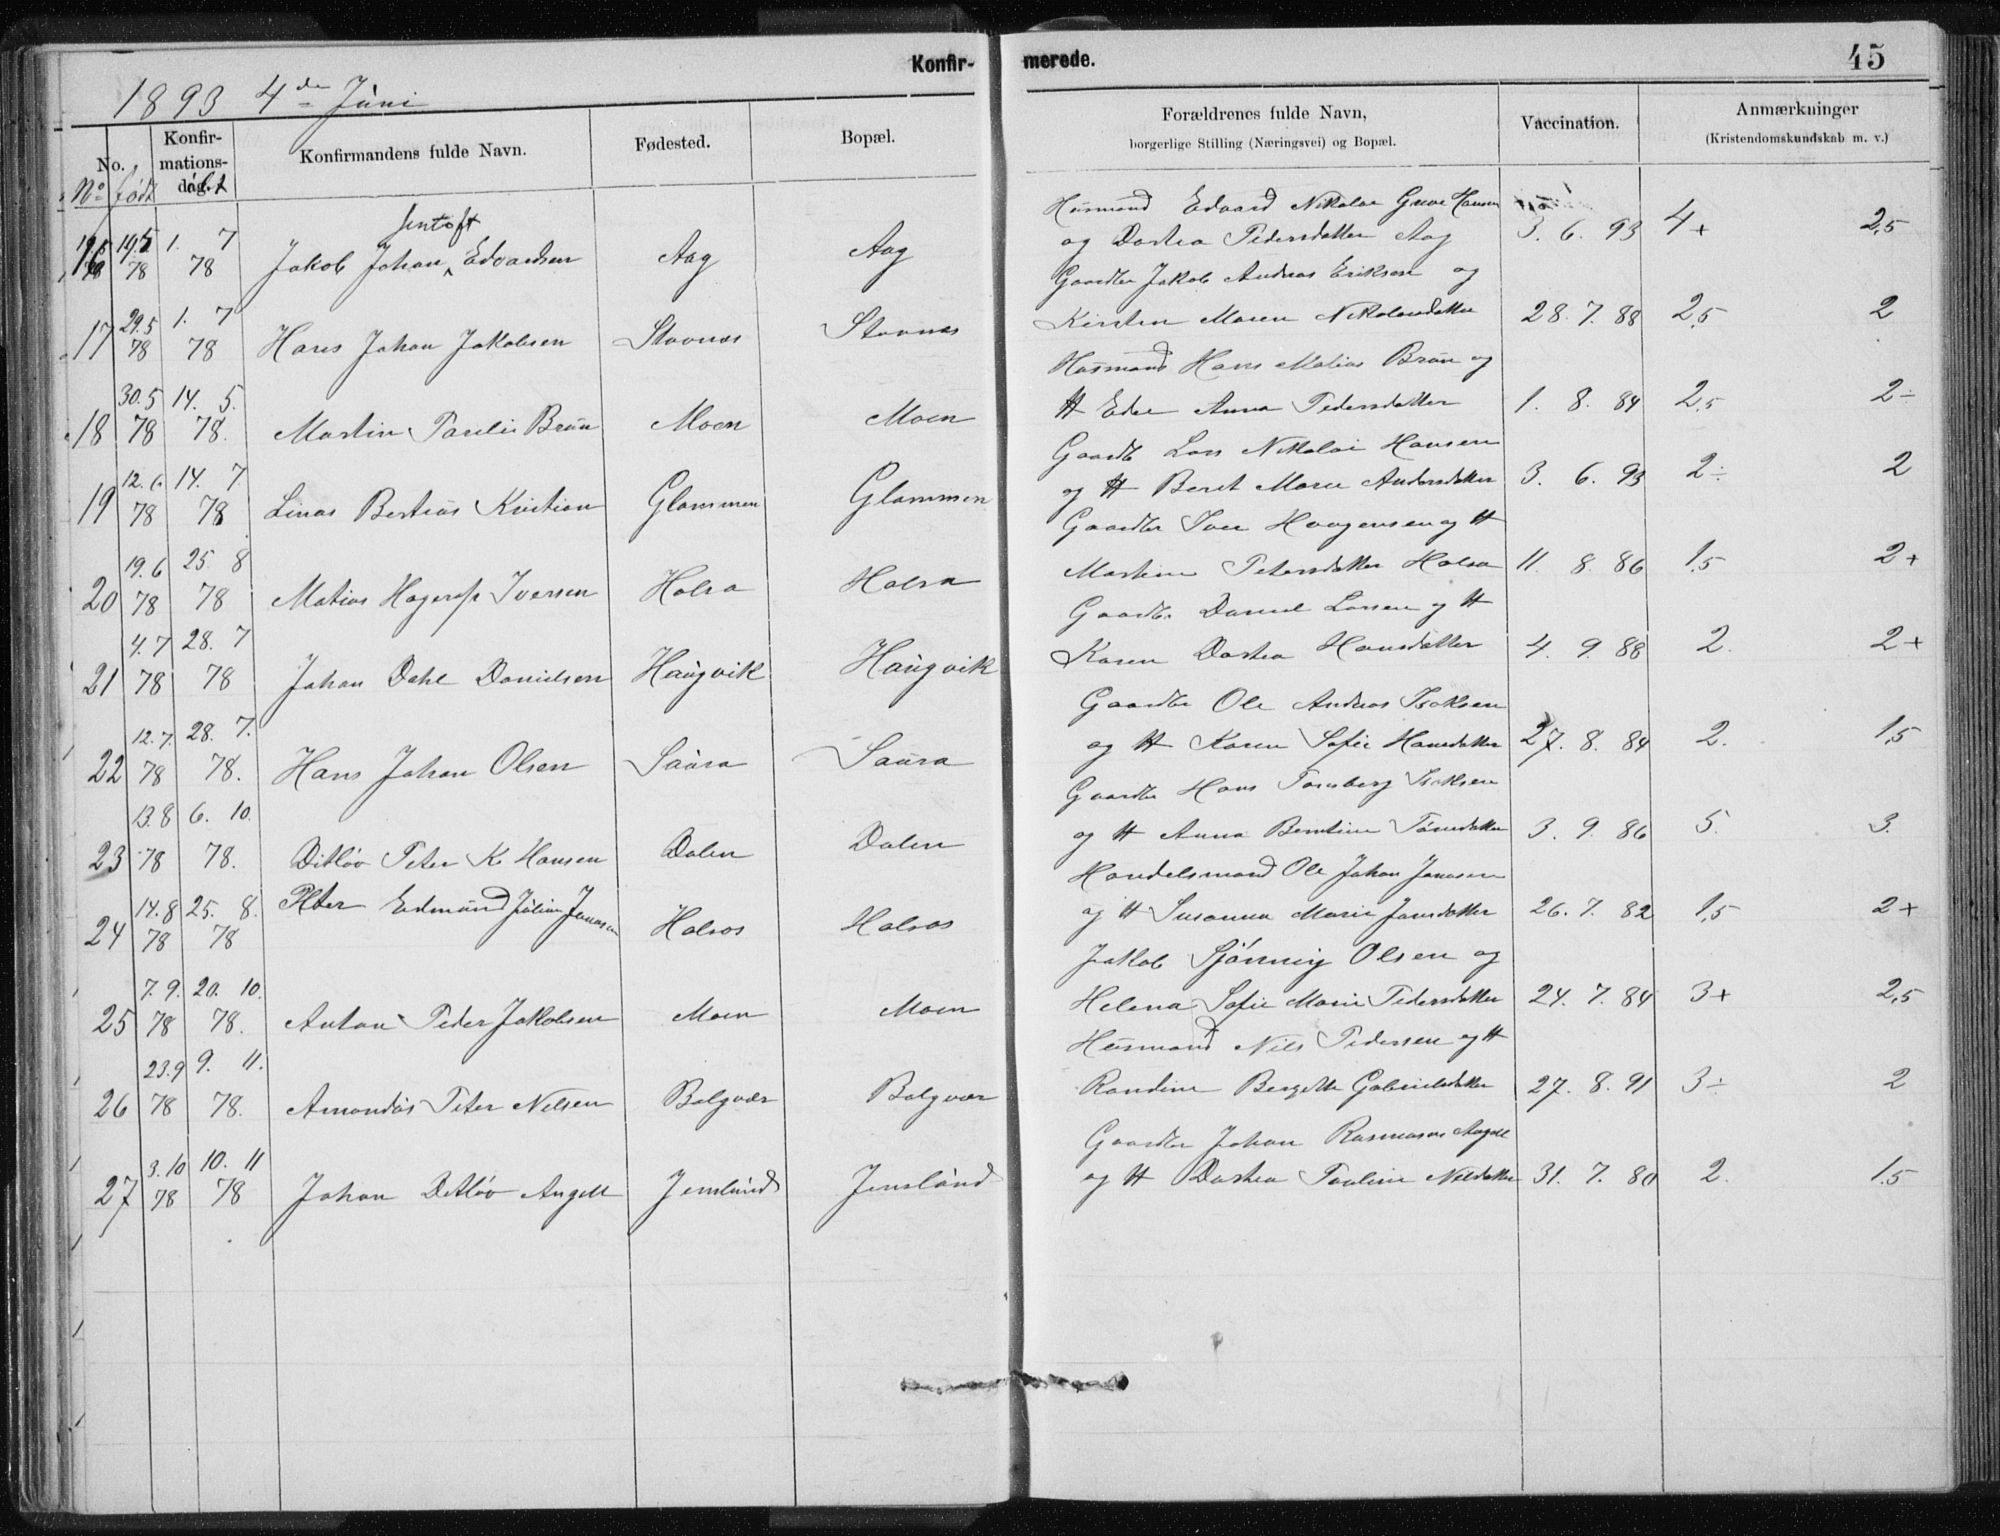 Konfir-
merede.
45
1893 4de Júni
No.
Konfir-
mations-
dag.
Konfirmandens fulde Navn.
Fødested.
Bopæl.
Forældrenes fulde Navn,
borgerlige Stilling (Næringsvei) og Bopæl.
Vaccination.
Anmærkninger
(Kristendomskundskab m. v.)
No født døbt
Jentoft
Húsmand Edvard Nikolai Hansen
16 19.5 78 1. 7 78 Jakob Johan Edvardsen Aag Aag og Dortea Pedersdatter Aag 3. 6. 93 4+ 2,5
Gaardbr Jakob Andreas Eriksen og
17 29.5 78 1. 7 78 Hans Johan Jakobsen Stavnæs Stavnæs Kirsten Maren Nikolaisdatter 28. 7. 88 2,5 2
Húsmand Hans Matias Brún og
18 30.5 78 14. 5. 78. Martin Brún Moen Moen H Anna Pedersdatter 1. 8. 84 2,5 2÷
Gaardb Lars Nikolai Hansen
19 12.6 78 14. 7. 78 Linas Bertéus Kristian Glammen Glammen og H Beret Maria Andersdatter 3. 6. 93 2÷ 2
Gaardbr Iver Haagensen og H
20 19.6 78 25. 8 78 Matias Hagerup Iversen Halsa Halsa Martine Petersdatter Halsa 11. 8. 86 1,5 2+
Gaardbr Daniel Larsen og H
21 4.7 78 28. 7 78 Johan Dahl Danielsen Haúgvik Haúgvik Karen Dortea Hansdatter 4. 9. 88 2. 2+
Gaardbr Ole Andreas Isaksen
22 12.7. 78 28. 7. 78. Hans Johan Olsen Saúra Saúra og H Karen Sofie Hansdatter 27. 8. 84 2. 1,5
Gaardbr Hans Tornberg Isaksen
23 13.8 78 6. 10. 78. Ditløv Peter K. Hansen Dalen Dalen og H Anna Berntine Tønnesdatter 3. 9. 86 5. 3.
Handelsmand Ole Johan Jonasen
24 14.8 78 25. 8. 78 Peter Edmúnd Júlian Jonasen Halsos Halsos og H Susanna Marie Jansdatter 26. 7. 82 1,5 2+
Jakob Sjönnig Olsen og
25 7.9. 78 20. 10. 78. Anton Peder Jakobsen Moen Moen Helena Sofie Marie Pedersdatter 24. 7. 84 3+ 2,5
Húsmand Nils Pedersen og H
26 23.9 78 9. 11. 78. Amandús Peter Nilsen Bolgvær Bolgvær Randine Bergitte Gabrielsdatter 27. 8. 91 3÷ 2
Gaardbr Johan Rasmusen Angell
27 3.10 78 10. 11 78 Johan Ditløv Angell Jenslúnd Jenslúnd og H Dortea Pauline Nilsdatter 31. 7. 80 2. 1.5